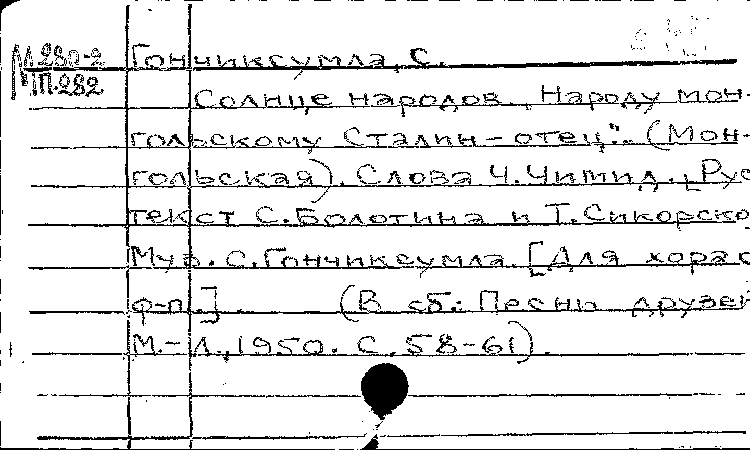 М 280-2
Гончиксумла, С.
П.282
Солнце народов. „Народу мон-
гольскому Сталин – отец". (Мон-
гольская). Слова Ч. Чимид. [Рус
текст С. Болотина и Т. Сикорско
Муз. С. Гончиксумла. [Для хора с
ф-п.] (В сб: Песни друзей
М.-Л., 1950. С. 58-61).